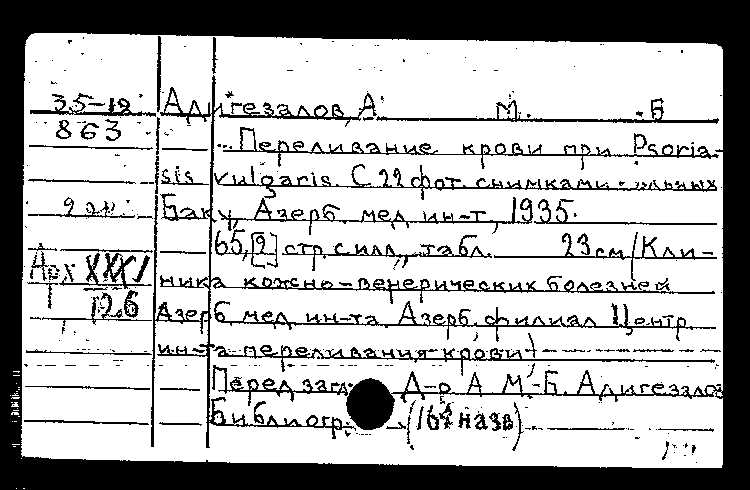 35-12 Адигезалов, А. М.-Б.
863 ...Переливание крови при Psoria-
sis vulgaris. С 22 фот. снимками
2 эк. Баку, Азерб. мед. ин-т, 1935.
65, [2] стр. с илл., табл. 23 см (Кли-
Арх XXXV ника кожно-венерических болезней
126 Азерб. мед. ин-та. Азерб. филиал Центр.
ин-та переливания крови)
Перед загл. Д-р А. М.-Б. Адигезалов
Библиогр. (164 назв.)